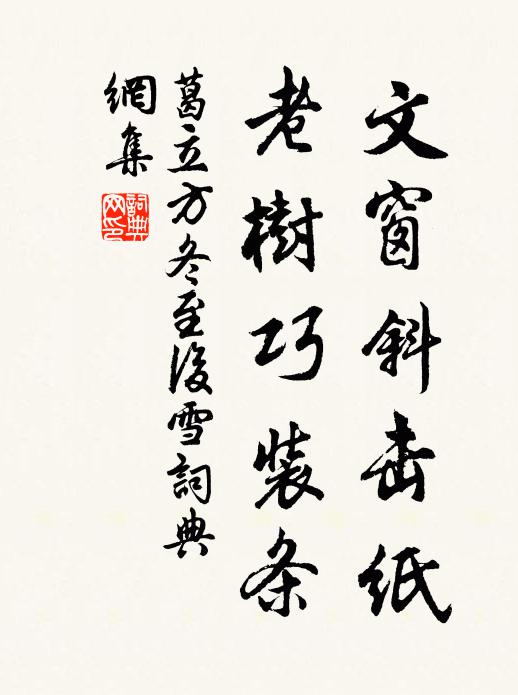 文窗斜击纸
老樹巧裝条
葛立方冬至後雪詞典
網集
詞典網印